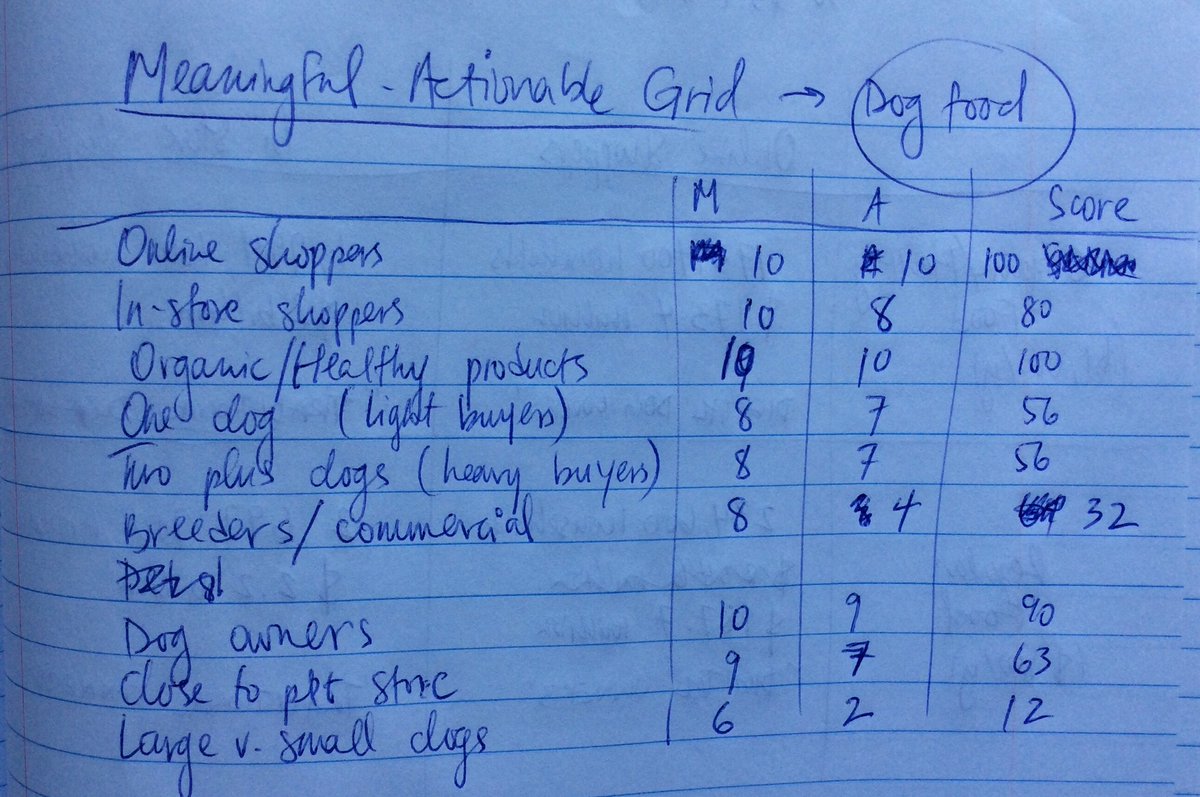 Meaningful - Actionable Grid → Dog food
M A Score
Online shoppers 10 10 100
In-store shoppers 10 8 80
Organic/Healthy products 10 10 100
One dog (light buyers) 8 7 56
Two plus dogs (heavy buyers) 8 7 56
Breeders/commercial 8 4 32
Dog owners 10 9 90
Close to pet store 9 7 63
Large v. small dogs 6 2 12